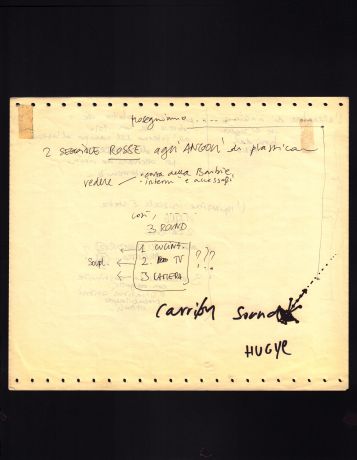 proseguiamo.....
2 SEGGIOLE ROSSE agli ANGOLI di plastica
vedere - casa della Barbie
- interni e accessori
così,
3 ROUND
1. CUCINA
2. TV
3. CAMERA
???
Soupl.
Carribn Sound
HUGYE